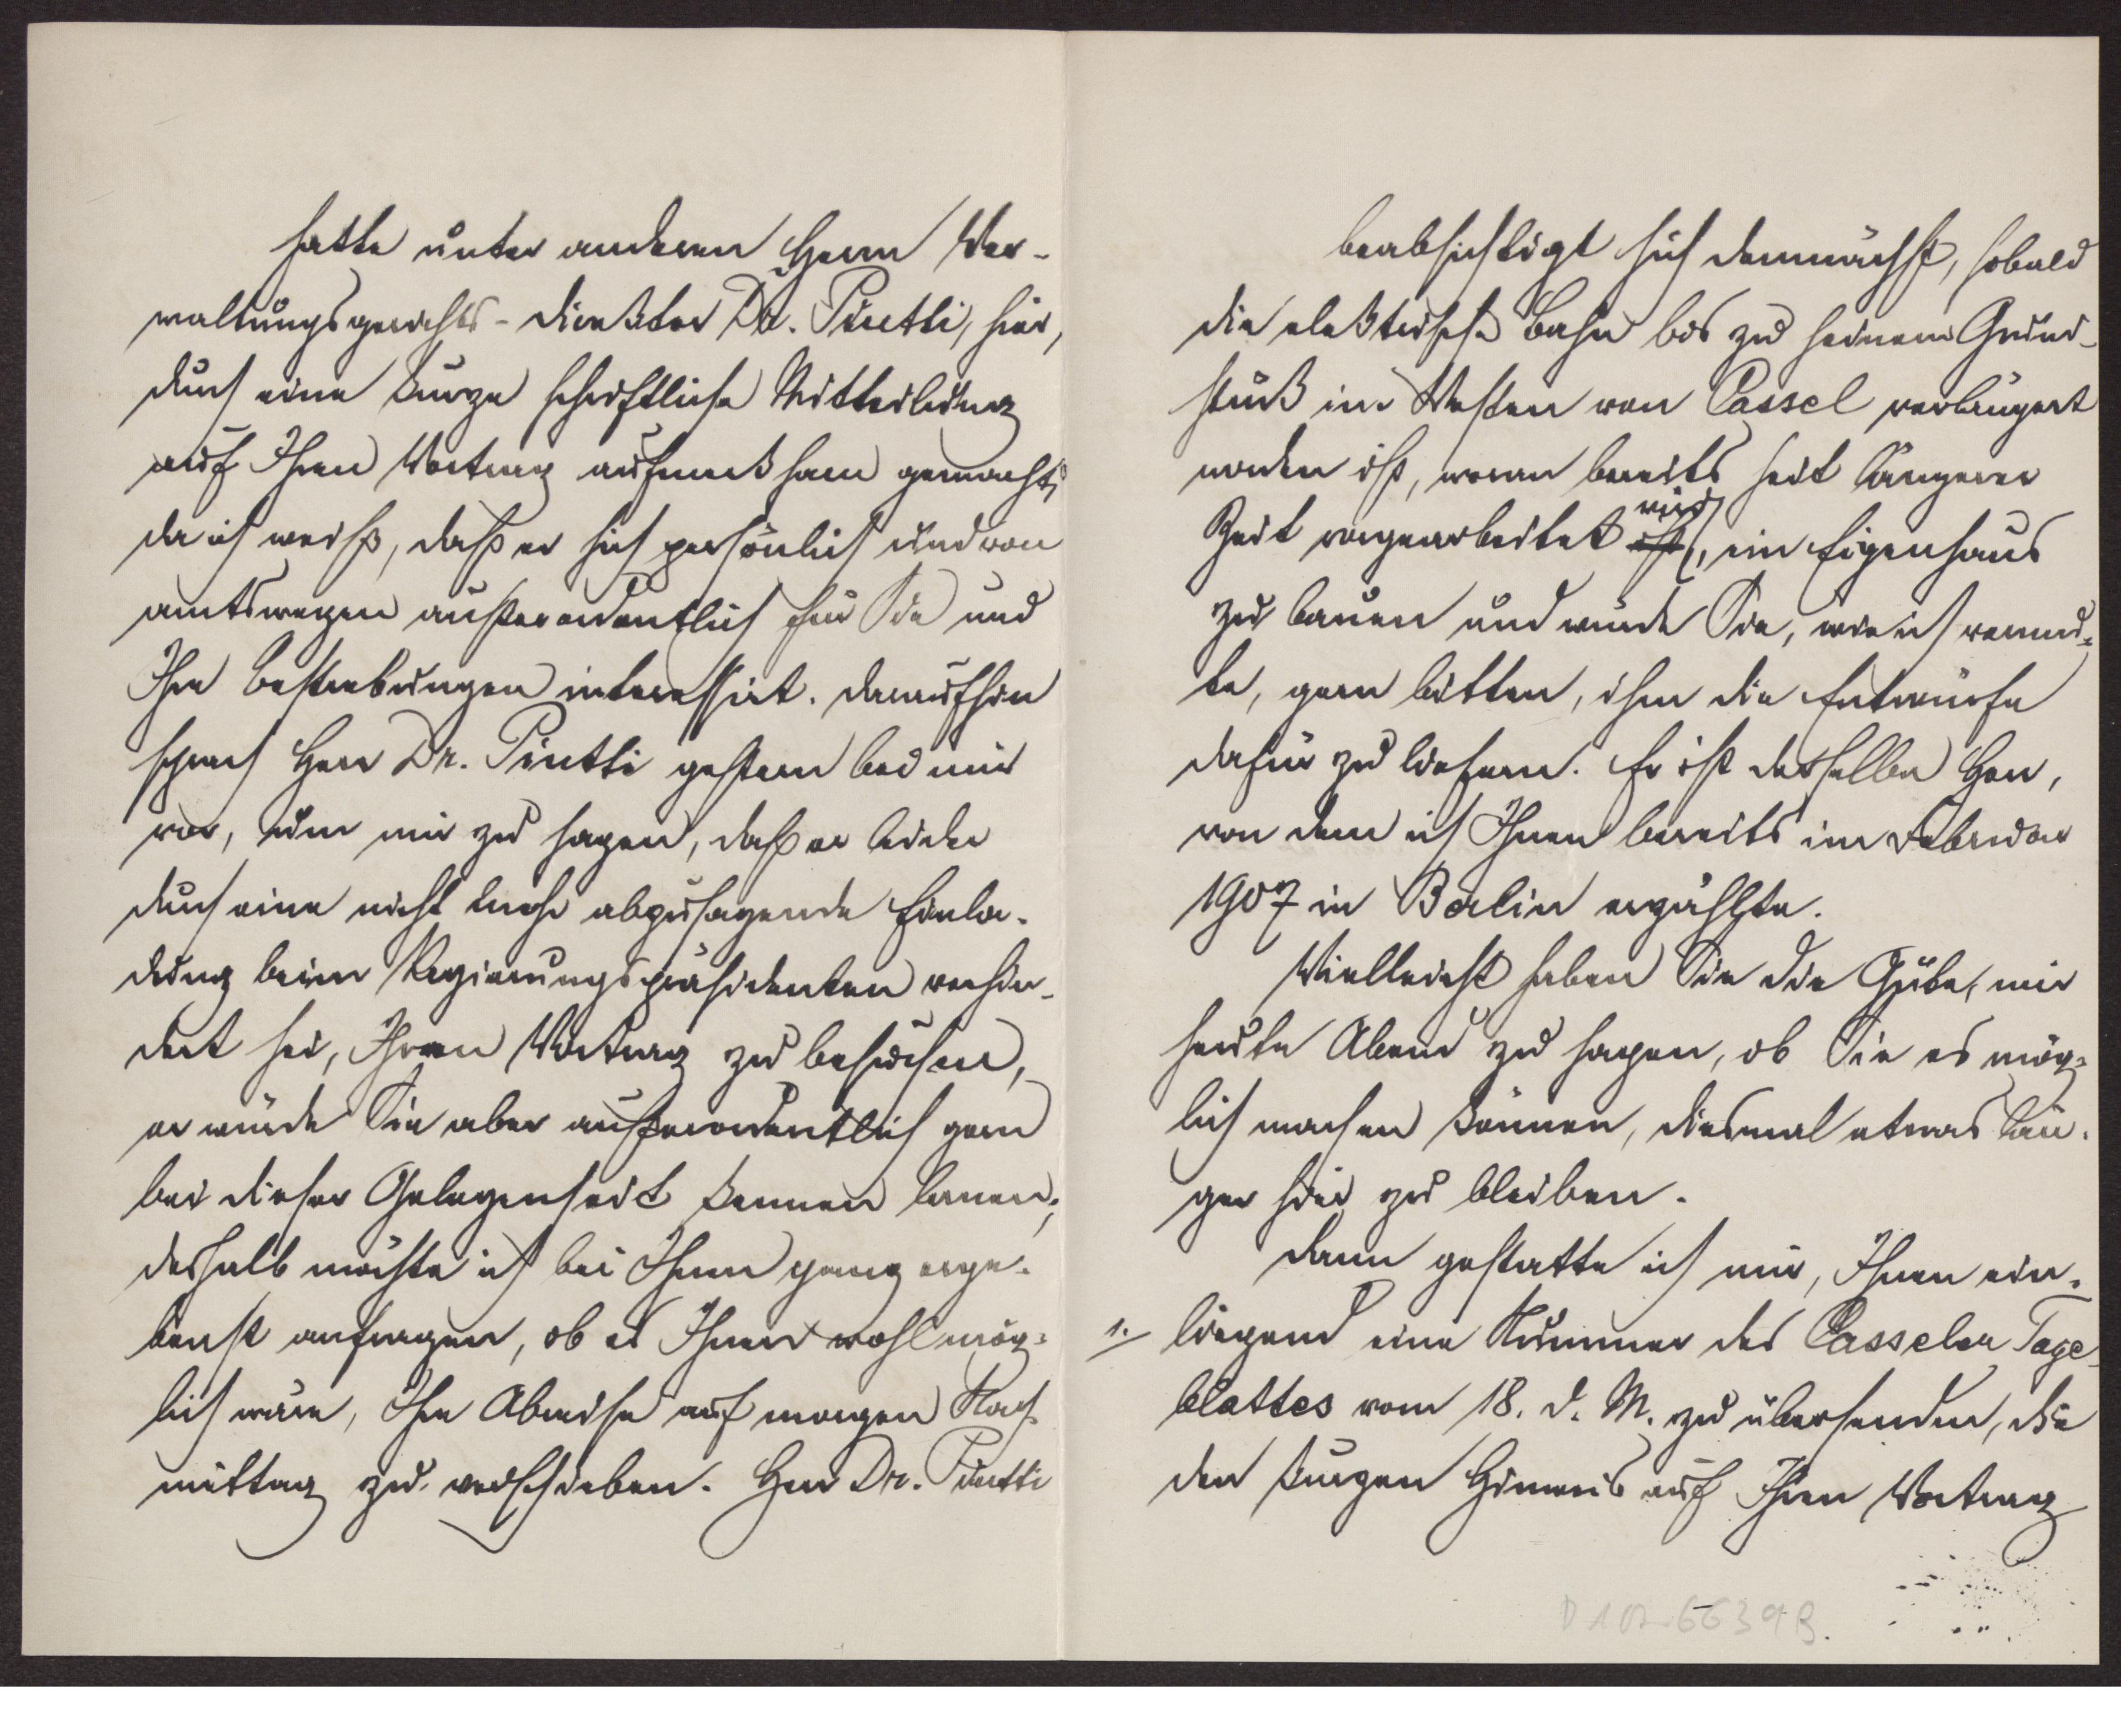 hatte unter anderen Herrn Ver-
waltungsgerichts-Direktor Dr. Pintti, hier,
durch eine kurze schriftliche Mitteilung
auf Ihren Vortrag aufmerksam gemacht,
da ich weiß, daß er sich persönlich und von
amtswegen außerordentlich für Sie und
Ihre Bestrebungen interessirt. Daraufhin
sprach Herr Dr. Pintti gestern bei mir
vor, um mir zu sagen, daß er leider
durch eine nicht mehr abzusagende Einla-
dung beim Regierungspräsidenten verhin-
dert sei, Ihren Vortrag zu besuchen,
er würde Sie aber außerordentlich gern
bei dieser Gelegenheit kennen lernen;
deshalb möchte ich bei Ihnen ganz erge-
benst anfragen, ob es Ihnen wohl mög-
lich wäre, Ihre Abreise auf morgen Nach-
mittag zu verschieben. Herr Dr. Pintti
beabsichtigt sich demnächst, sobald
die elektrische Bahn bis zu seinem Grund-
stück im Westen von Cassel verlängert
worden ist, woran bereits seit längerer
Zeit vorgearbeitet ist wird, ein Eigenhaus
zu bauen und würde Sie, wie ich vermu-
te, gern bitten, ihm die Entwürfe
dafür zu liefern. Er ist derselbe Herr,
von dem ich Ihnen bereits im Februar
1907 in Berlin erzählte.
Vielleicht haben Sie die Güte, mir
heute Abend zu sagen, ob Sie es mög-
lich machen können, diesmal etwas län-
ger hier zu bleiben.
Dann gestatte ich mir, Ihnen ein-
1. liegend eine Nummer des Casseler Tage-
blattes vom 18. d. M. zu übersenden, die
den kurzen Hinweis auf Ihren Vortrag